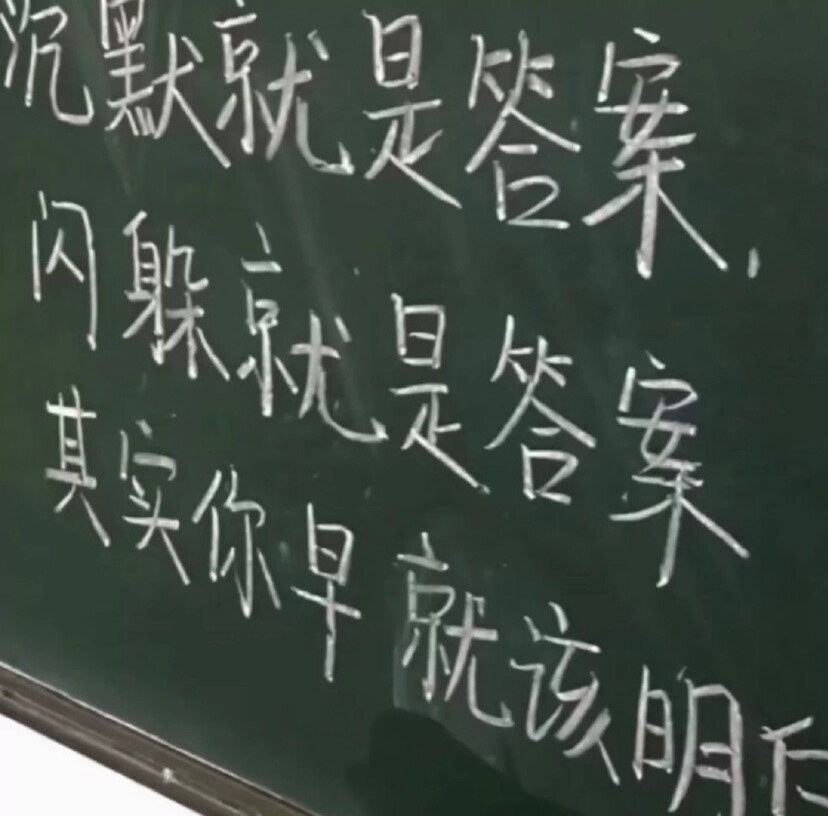 沉默就是答案,
闪躲就是答案
其实你早就该明白